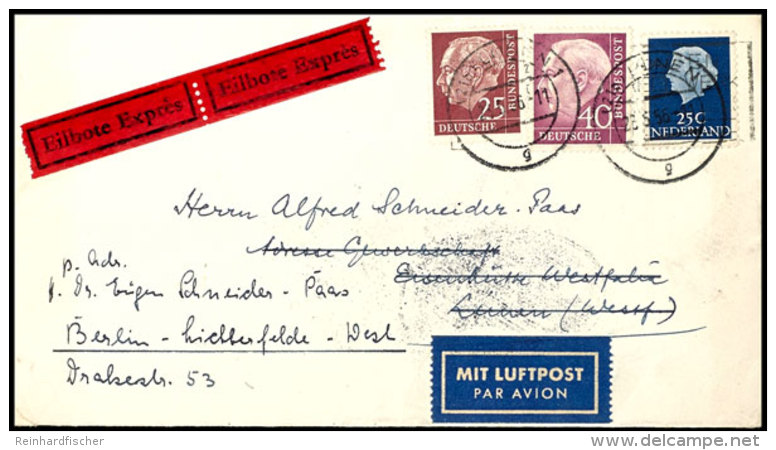 Eilbote Exprès Eilbote Exprès
25 DEUTSCHE BUNDESPOST
40 DEUTSCHE BUNDESPOST
25 C NEDERLAND
g g
Herrn Alfred Schneider-Paas
Adresse Gewerkschaft
Eisenhütte Westfalia
Lünen (Westf.)
p. Adr.
Dr. Eugen Schneider-Paas
Berlin-Lichterfelde-West
Drakestr. 53
MIT LUFTPOST
PAR AVION
Reinhardfischer
www.delcampe.net